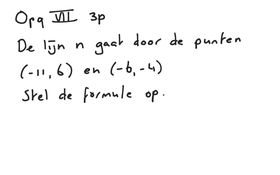 Opg VII 3p
De lijn n gaat door de punten
(-11, 6) en (-6, -4)
Stel de formule op.